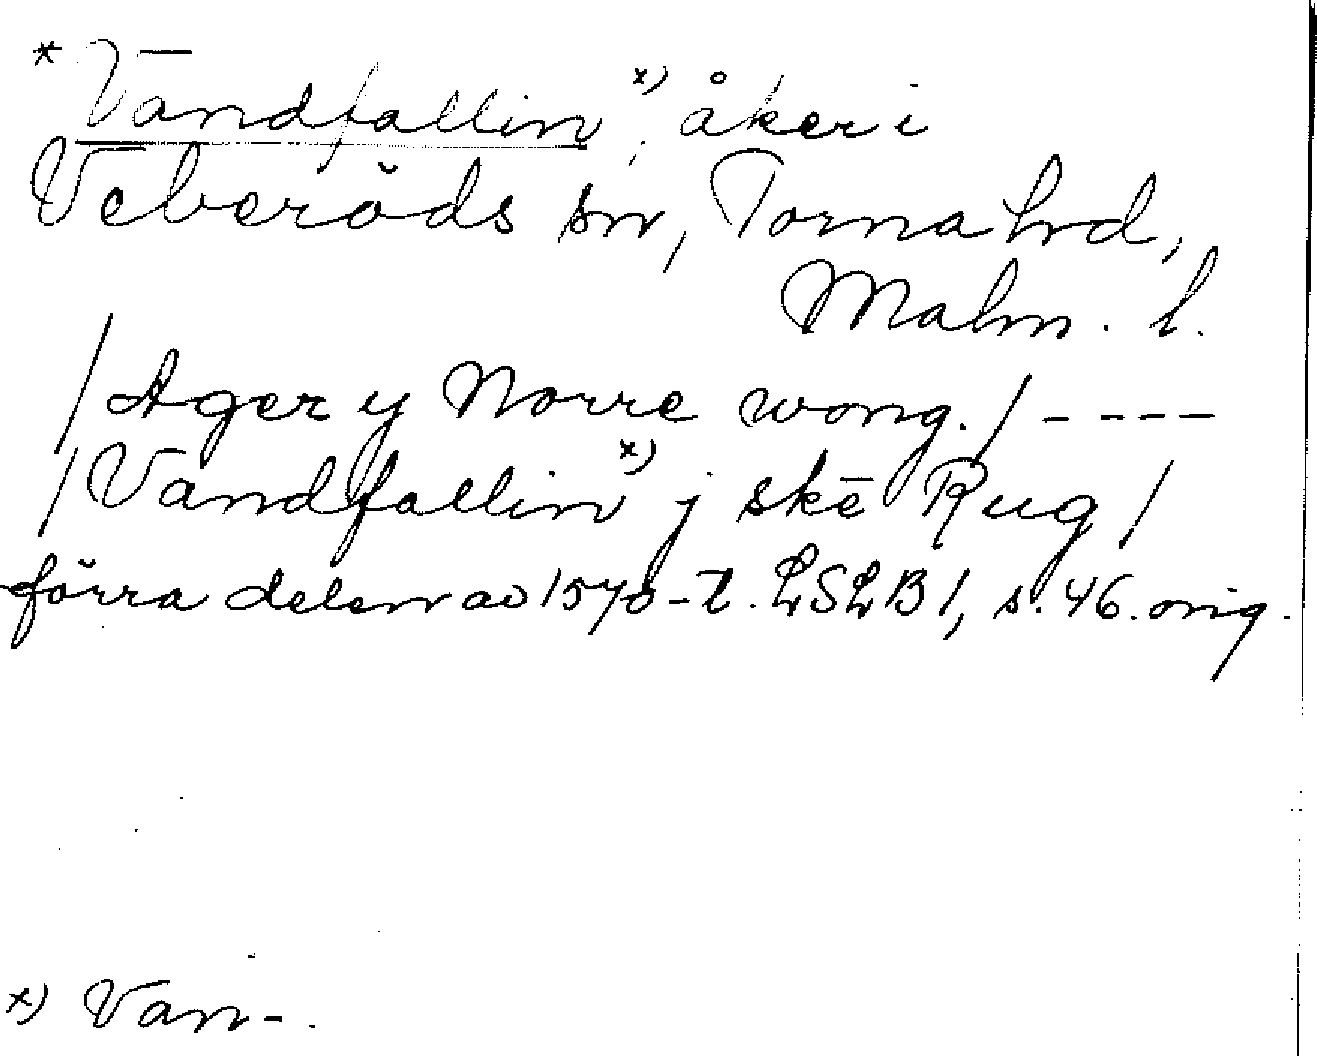 * Vandfallin x), åker i
Veberöds sn, Torna hrd,
Malm. l.
/Ager y Norre wong./----
/Vandfallin x) j skē Rug/
förra delen av 1570-t. LSLB1, s. 46. orig.
x) Van-.